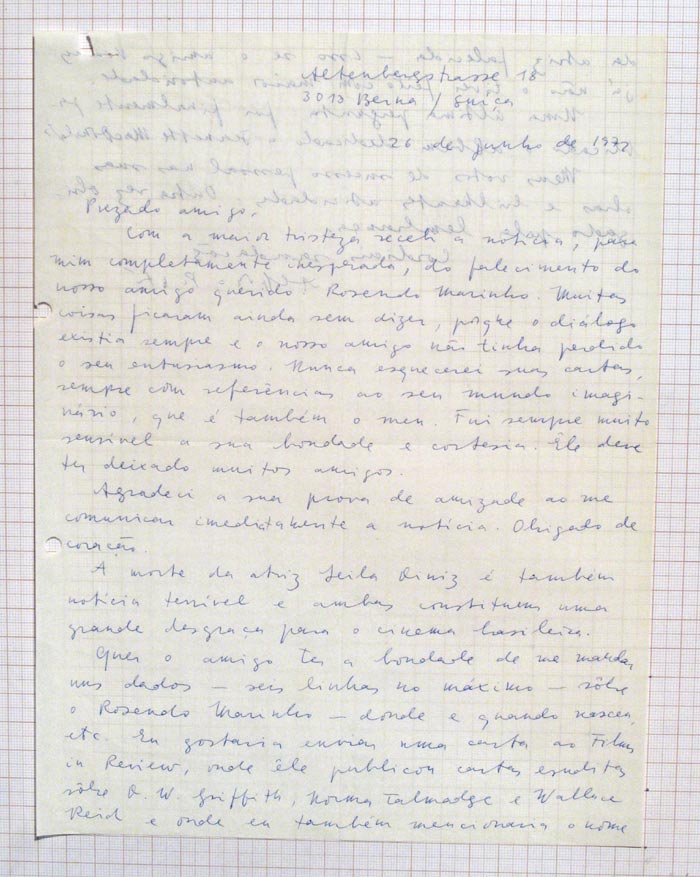 Altenbergstrasse 18
3013 Berna / Suíça
26 de junho de 1972
Prezado amigo,
Com a maior tristeza recebi a notícia, para
mim completamente inesperada, do falecimento do
nosso amigo querido Rosendo Marinho. Muitas
coisas ficaram ainda sem dizer, porque o diálogo
existia sempre e o nosso amigo não tinha perdido
o seu entusiasmo. Nunca esquecerei suas cartas,
sempre com referências ao seu mundo imagi-
nário, que é também o meu. Fui sempre muito
sensível a sua bondade e cortesia. Êle deve
ter deixado muitos amigos.
Agradeci a sua prova de amizade ao me
comunicar imediatamente a notícia. Obrigado de
coração.
A morte da atriz Leila Diniz é também
notícia terrível e ambas constituem uma
grande desgraça para o cinema brasileiro.
Quer o amigo ter a bondade de me mandar
uns dados — seis linhas no máximo — sôbre
o Rosendo Marinho — donde e quando nasceu,
etc. Eu gostaria enviar uma carta ao Films
in Review, onde êle publicou cartas eruditas
sôbre D. W. Griffith, Norma Talmadge e Wallace
Reid e onde eu também mencionaria o nome